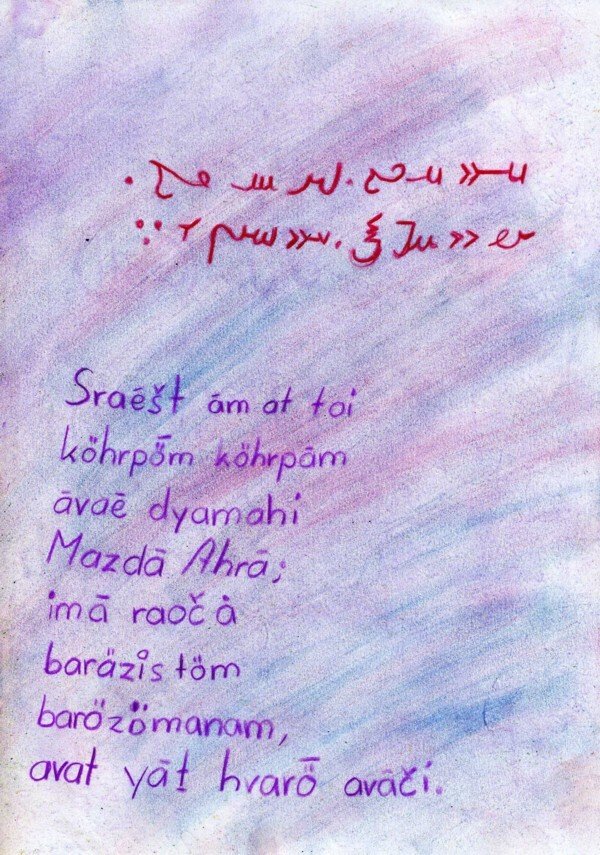 Sraēšt ām at toi
köhrpȫm köhrpām
āvaē dyamahi
Mazdā Ahrā;
imā raoč ȧ
baräzis töm
barözömanam,
avat yāt hvarȫ avāči.